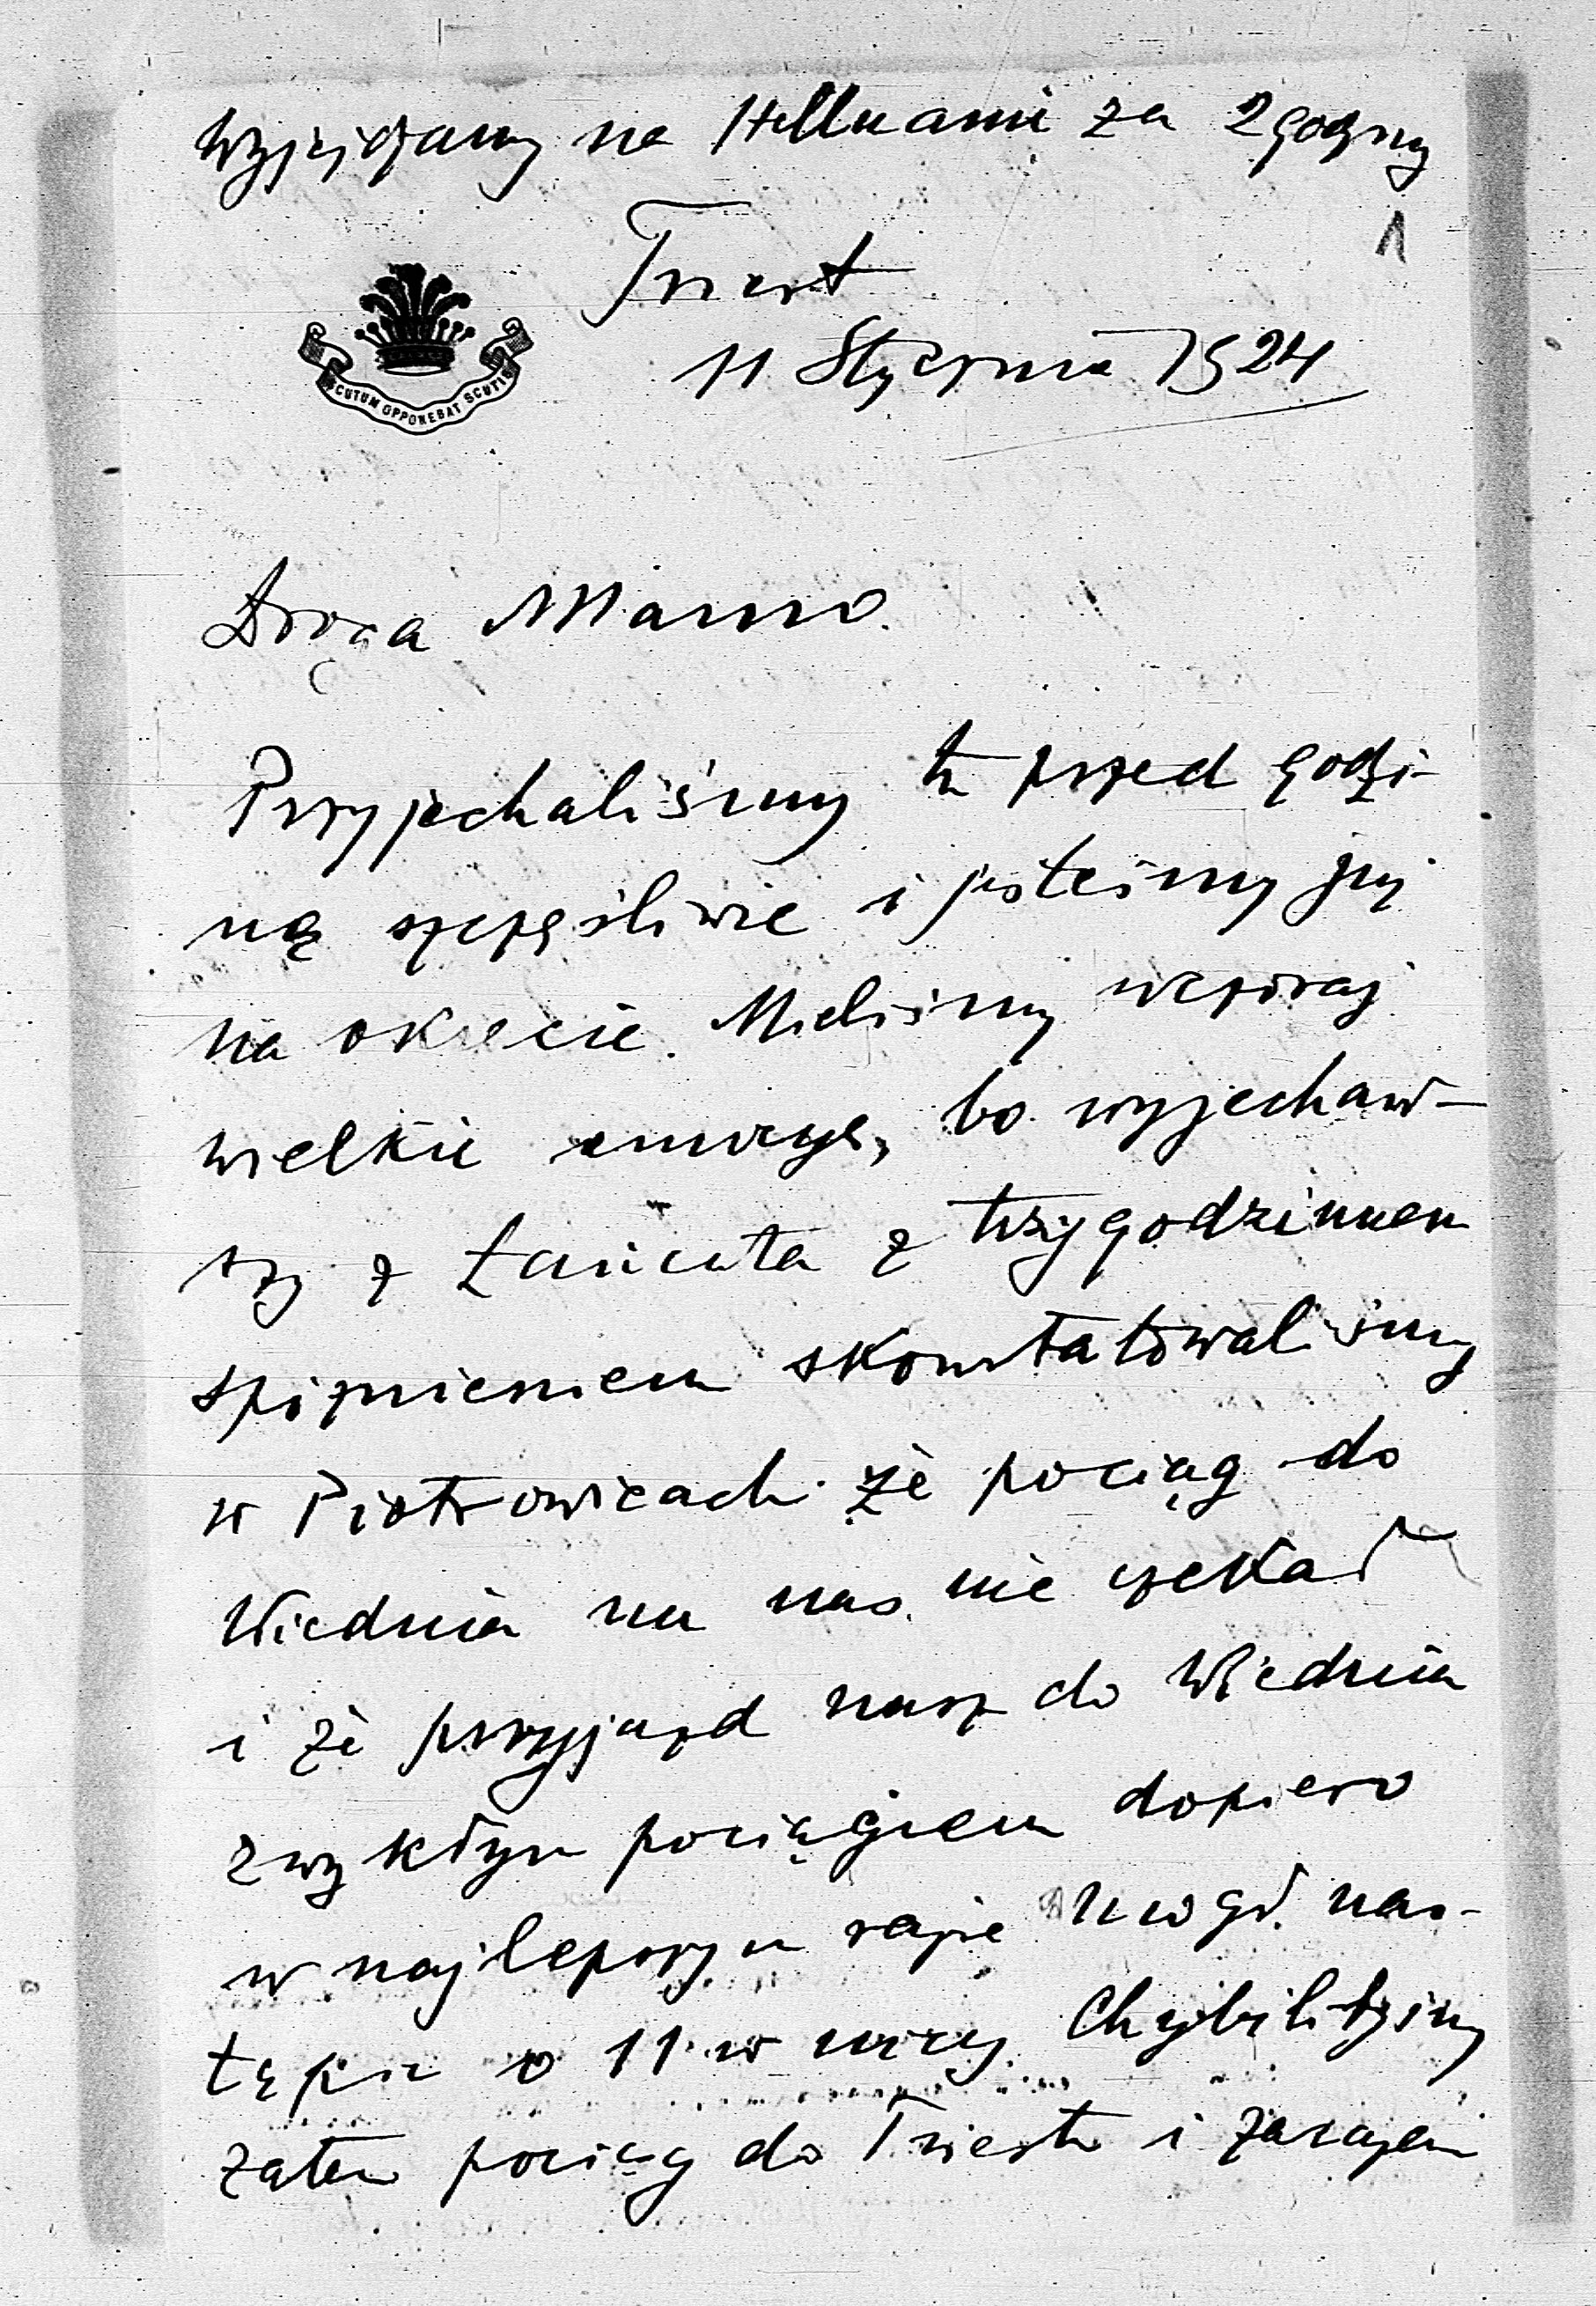 Wyjeżdżamy na Helluanie za 2 godziny
1
Triest
11 Stycznia 1924
SCUTUM OPPONEBAT SCUTIS
Droga Mamo.
Przyjechaliśmy tu przed godzi-
ną szczęśliwie i jesteśmy już
na okręcie. Mieliśmy wczoraj
wielkie emocye, bo wyjechaw-
szy z Łańcuta z trzygodzinnem
spóźnieniem skonstatowaliśmy
w Piotrowicach że pociąg do
Wiednia na nas nie czekał
i że przyjazd nasz do Wiednia
zwykłym pociągiem dopiero
w najlepszym razie mógł nas-
tąpić o 11 w nocy. Chybilibyśmy
zatem pociąg do Triestu i zarazem